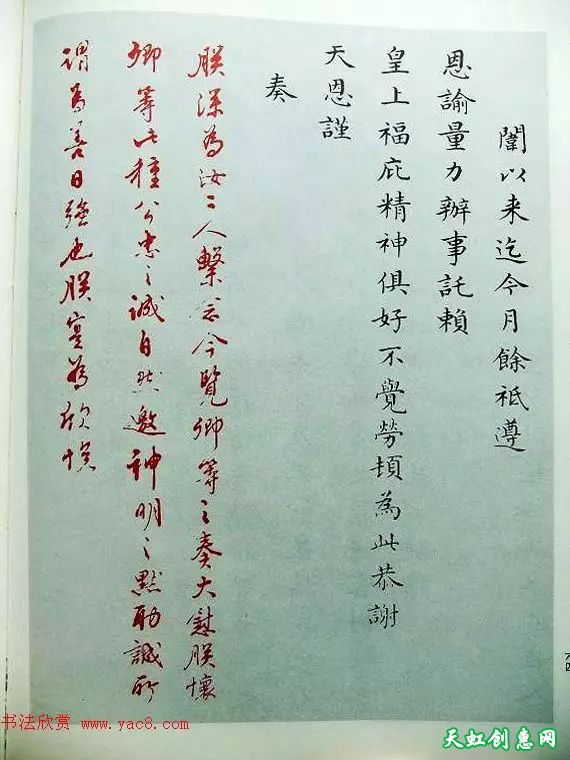 闈以来迄今月餘祗遵
恩諭量力辦事託賴
皇上福庇精神俱好不覺勞頓為此恭謝
天恩謹
奏
朕深為汝二人繫念今覽卿等之奏大慰朕懷
卿等此種公忠之誠自然邀神明之默助誠所
謂為善日強也朕寔為欣悅
书法欣赏 www.yac8.com
天虹创惠网